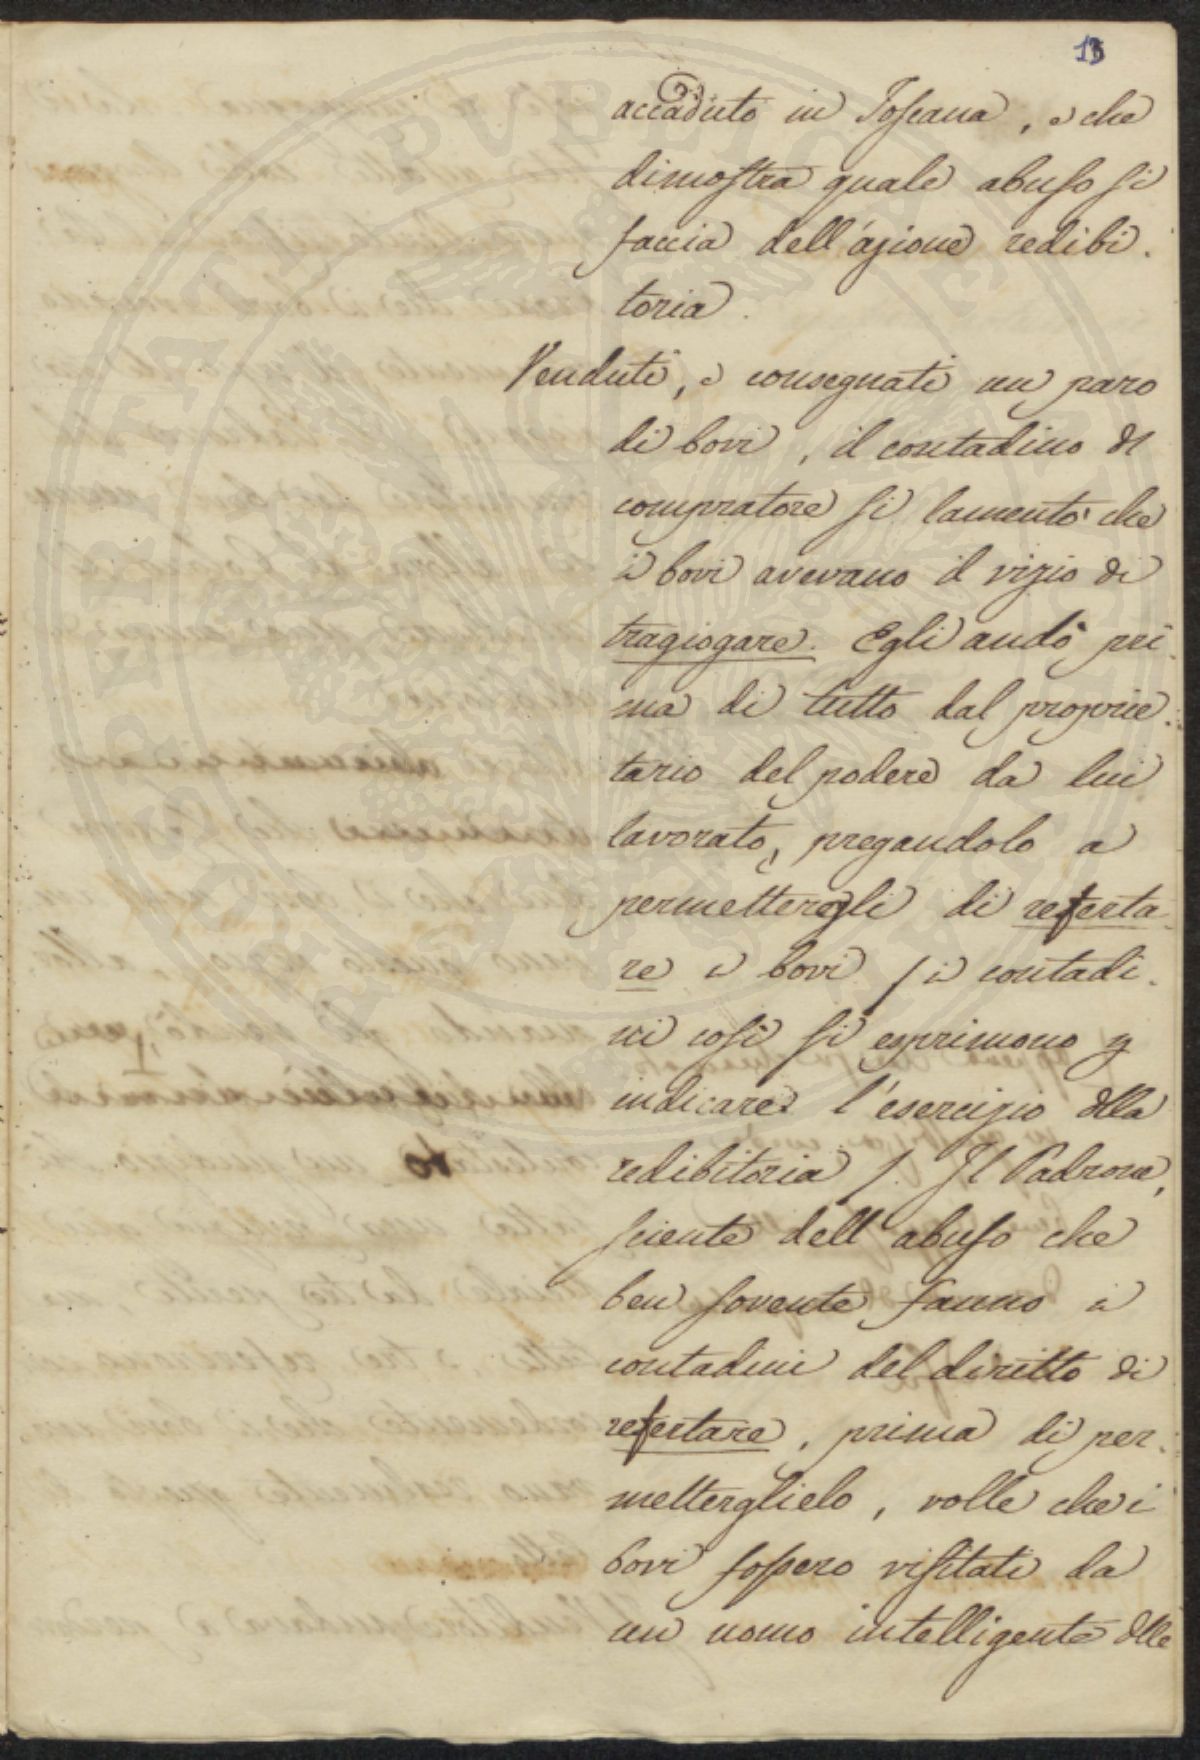 13
accaduto in Toscana, e che
dimostra quale abuso si
faccia dell'azione redibi-
toria.
Venduti, e consegnati un paro
di bovi, il contadino del
compratore si lamentò che
i bovi avevano il vizio di
tragiogare. Egli andò pri-
ma di tutto dal proprie-
tario del podere da lui
lavorato, pregandolo a
permettergli di referta-
re i bovi / i contadi-
ni così si esprimono p
indicare l'esercizio della
redibitoria /. Il Padrone,
sciente dell'abuso che
ben sovente fanno i
contadini del diritto di
refertare, prima di per-
metterglielo, volle che i
bovi fossero visitati da
un uomo intelligente delle